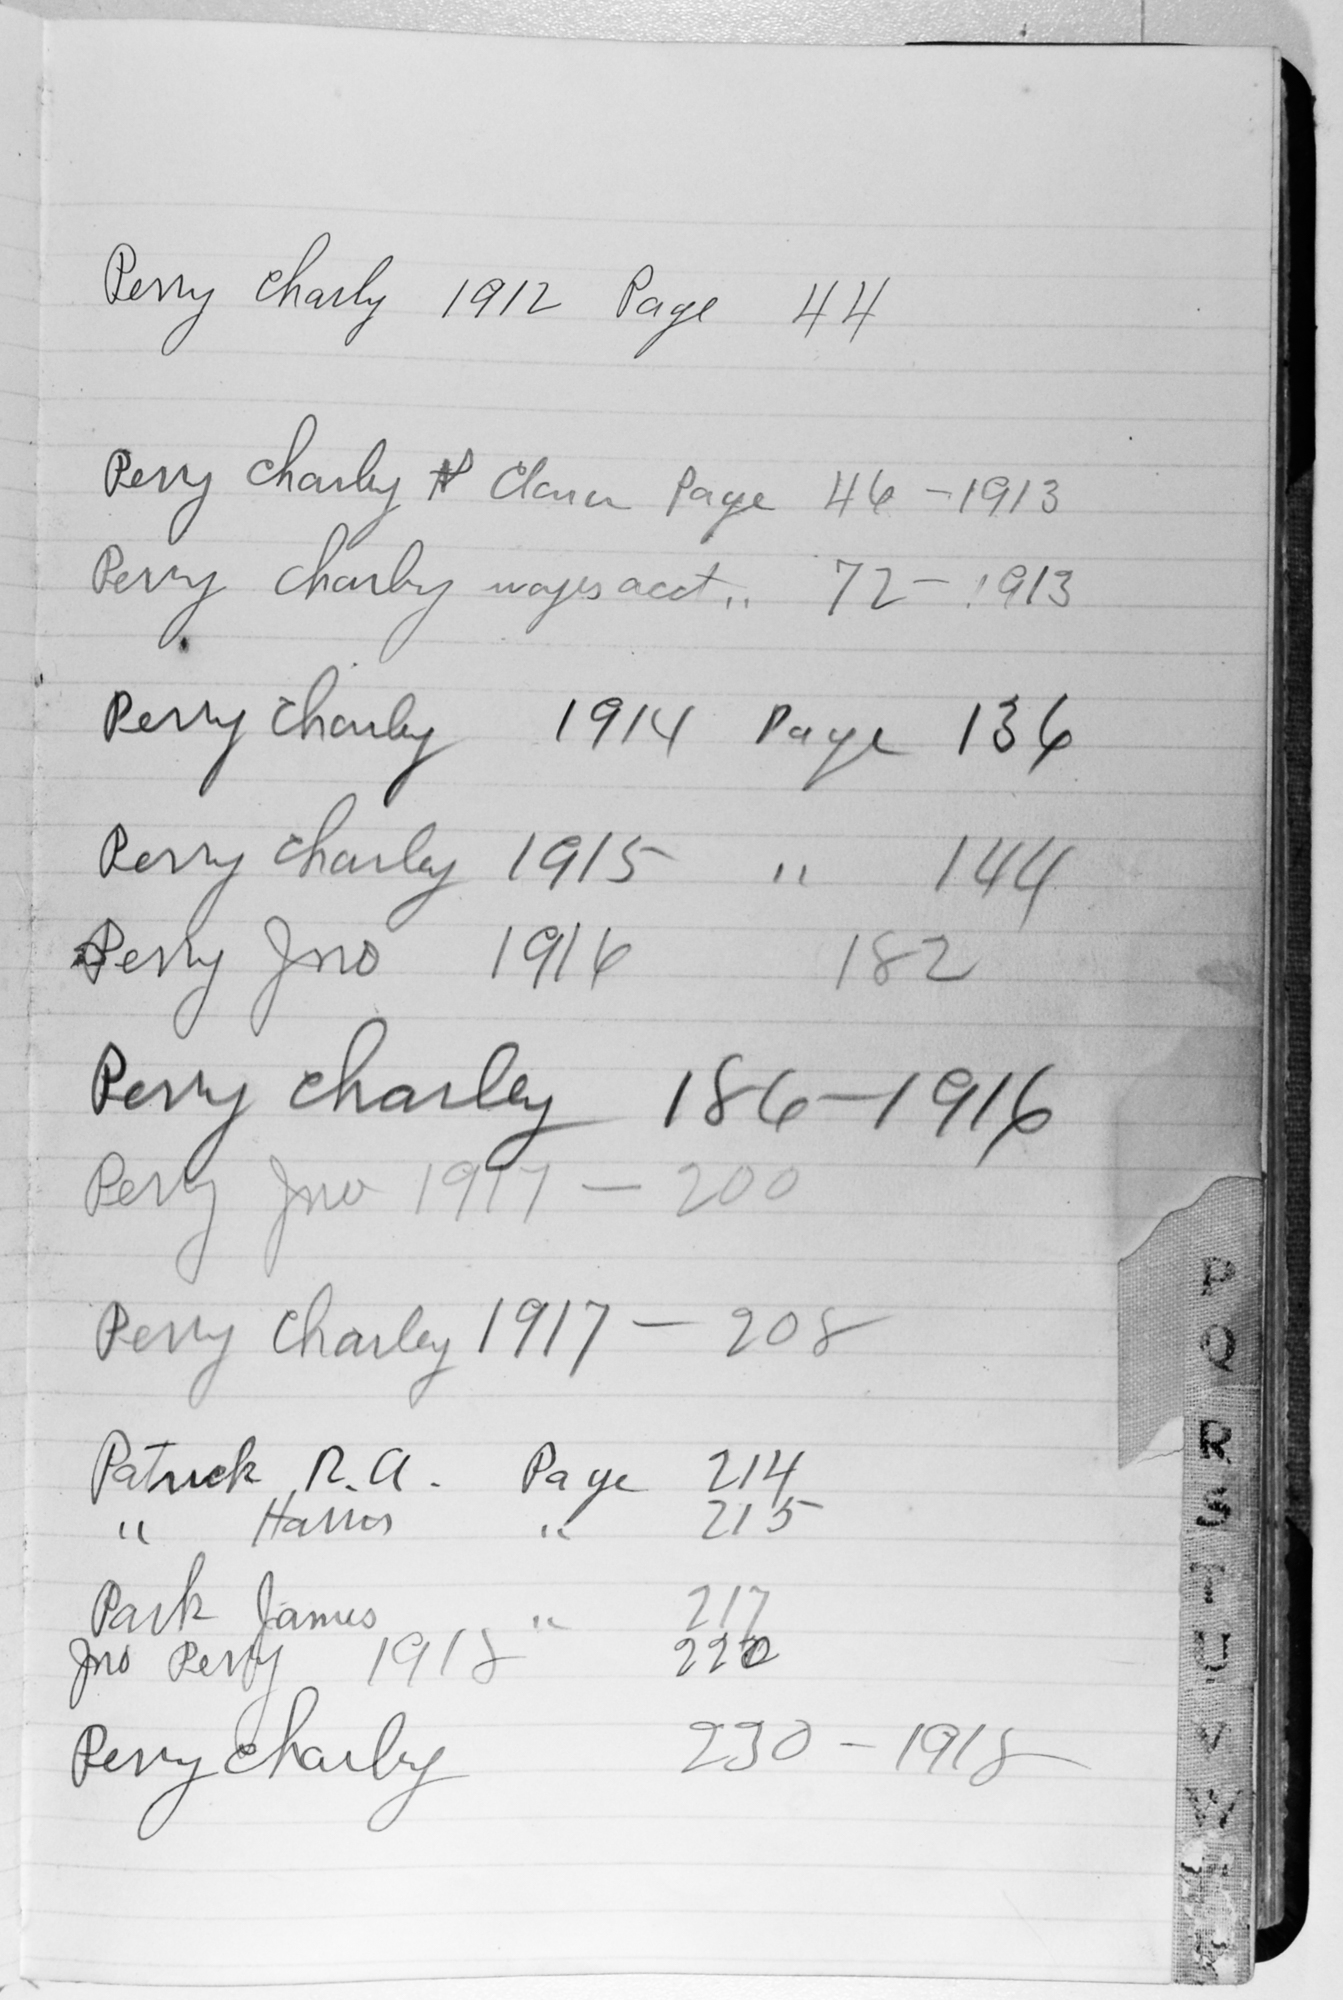 Perry Charly 1912 Page 44
Perry Charley Page 46 - 1913
Perry Charley wages acct " 72 - 1913
Perry Charley 1914 Page 136
Perry Charley 1915 " 144
Perry Jno 1916 182
Perry Charley 186 - 1916
Perry Jno 1917 - 200
Perry Charley 1917 - 208
Patrick R.A. Page 214
" Harris " 215
Park James " 217
Jno Perry 1918
Perry Charley 230 - 1918
P
Q
R
S
T
U
V
W